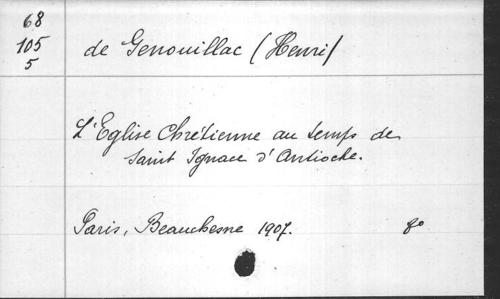 68
105
5
de Genouillac (Henri)
L'Eglise Chrétienne au temps de
Saint Ignace d'Antioche.
Paris, Beauchesne 1907. 8°